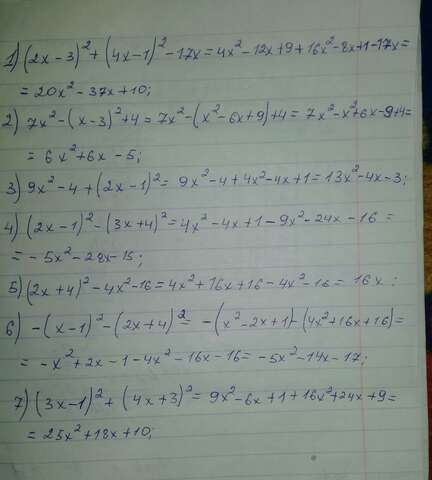 1) (2x-3)² + (4x-1)² - 17x = 4x² - 12x + 9 + 16x² - 8x + 1 - 17x =
= 20x² - 37x + 10;
2) 7x² - (x-3)² + 4 = 7x² - (x² - 6x + 9) + 4 = 7x² - x² + 6x - 9 + 4 =
= 6x² + 6x - 5;
3) 9x² - 4 + (2x-1)² = 9x² - 4 + 4x² - 4x + 1 = 13x² - 4x - 3;
4) (2x-1)² - (3x+4)² = 4x² - 4x + 1 - 9x² - 24x - 16 =
= - 5x² - 28x - 15;
5) (2x+4)² - 4x² - 16 = 4x² + 16x + 16 - 4x² - 16 = 16x;
6) - (x-1)² - (2x+4)² = - (x² - 2x + 1) - (4x² + 16x + 16) =
= - x² + 2x - 1 - 4x² - 16x - 16 = - 5x² - 14x - 17;
7) (3x-1)² + (4x+3)² = 9x² - 6x + 1 + 16x² + 24x + 9 =
= 25x² + 18x + 10;